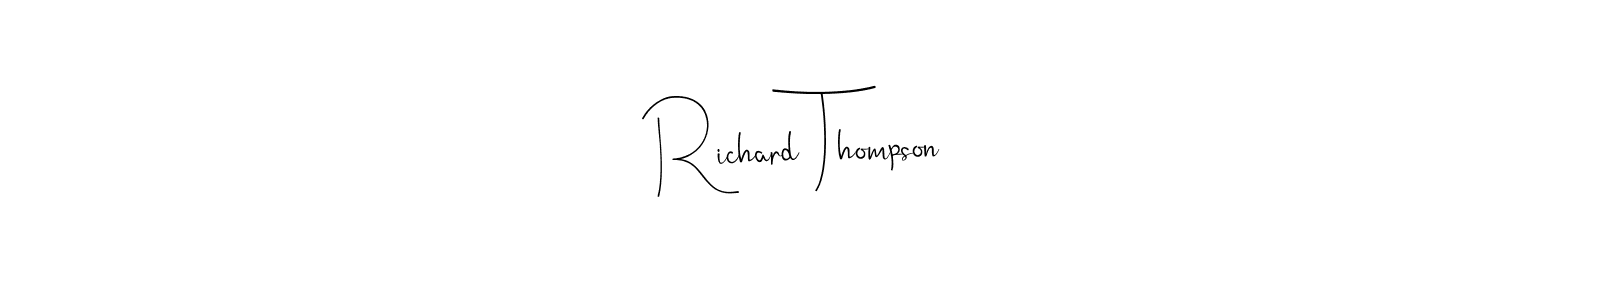 Richard Thompson